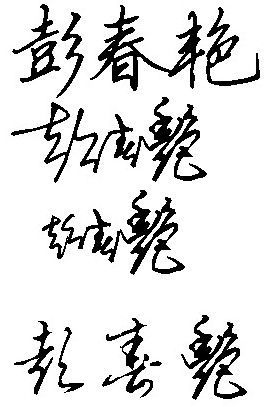 彭春艳
彭春艷
彭春艷
彭春艷